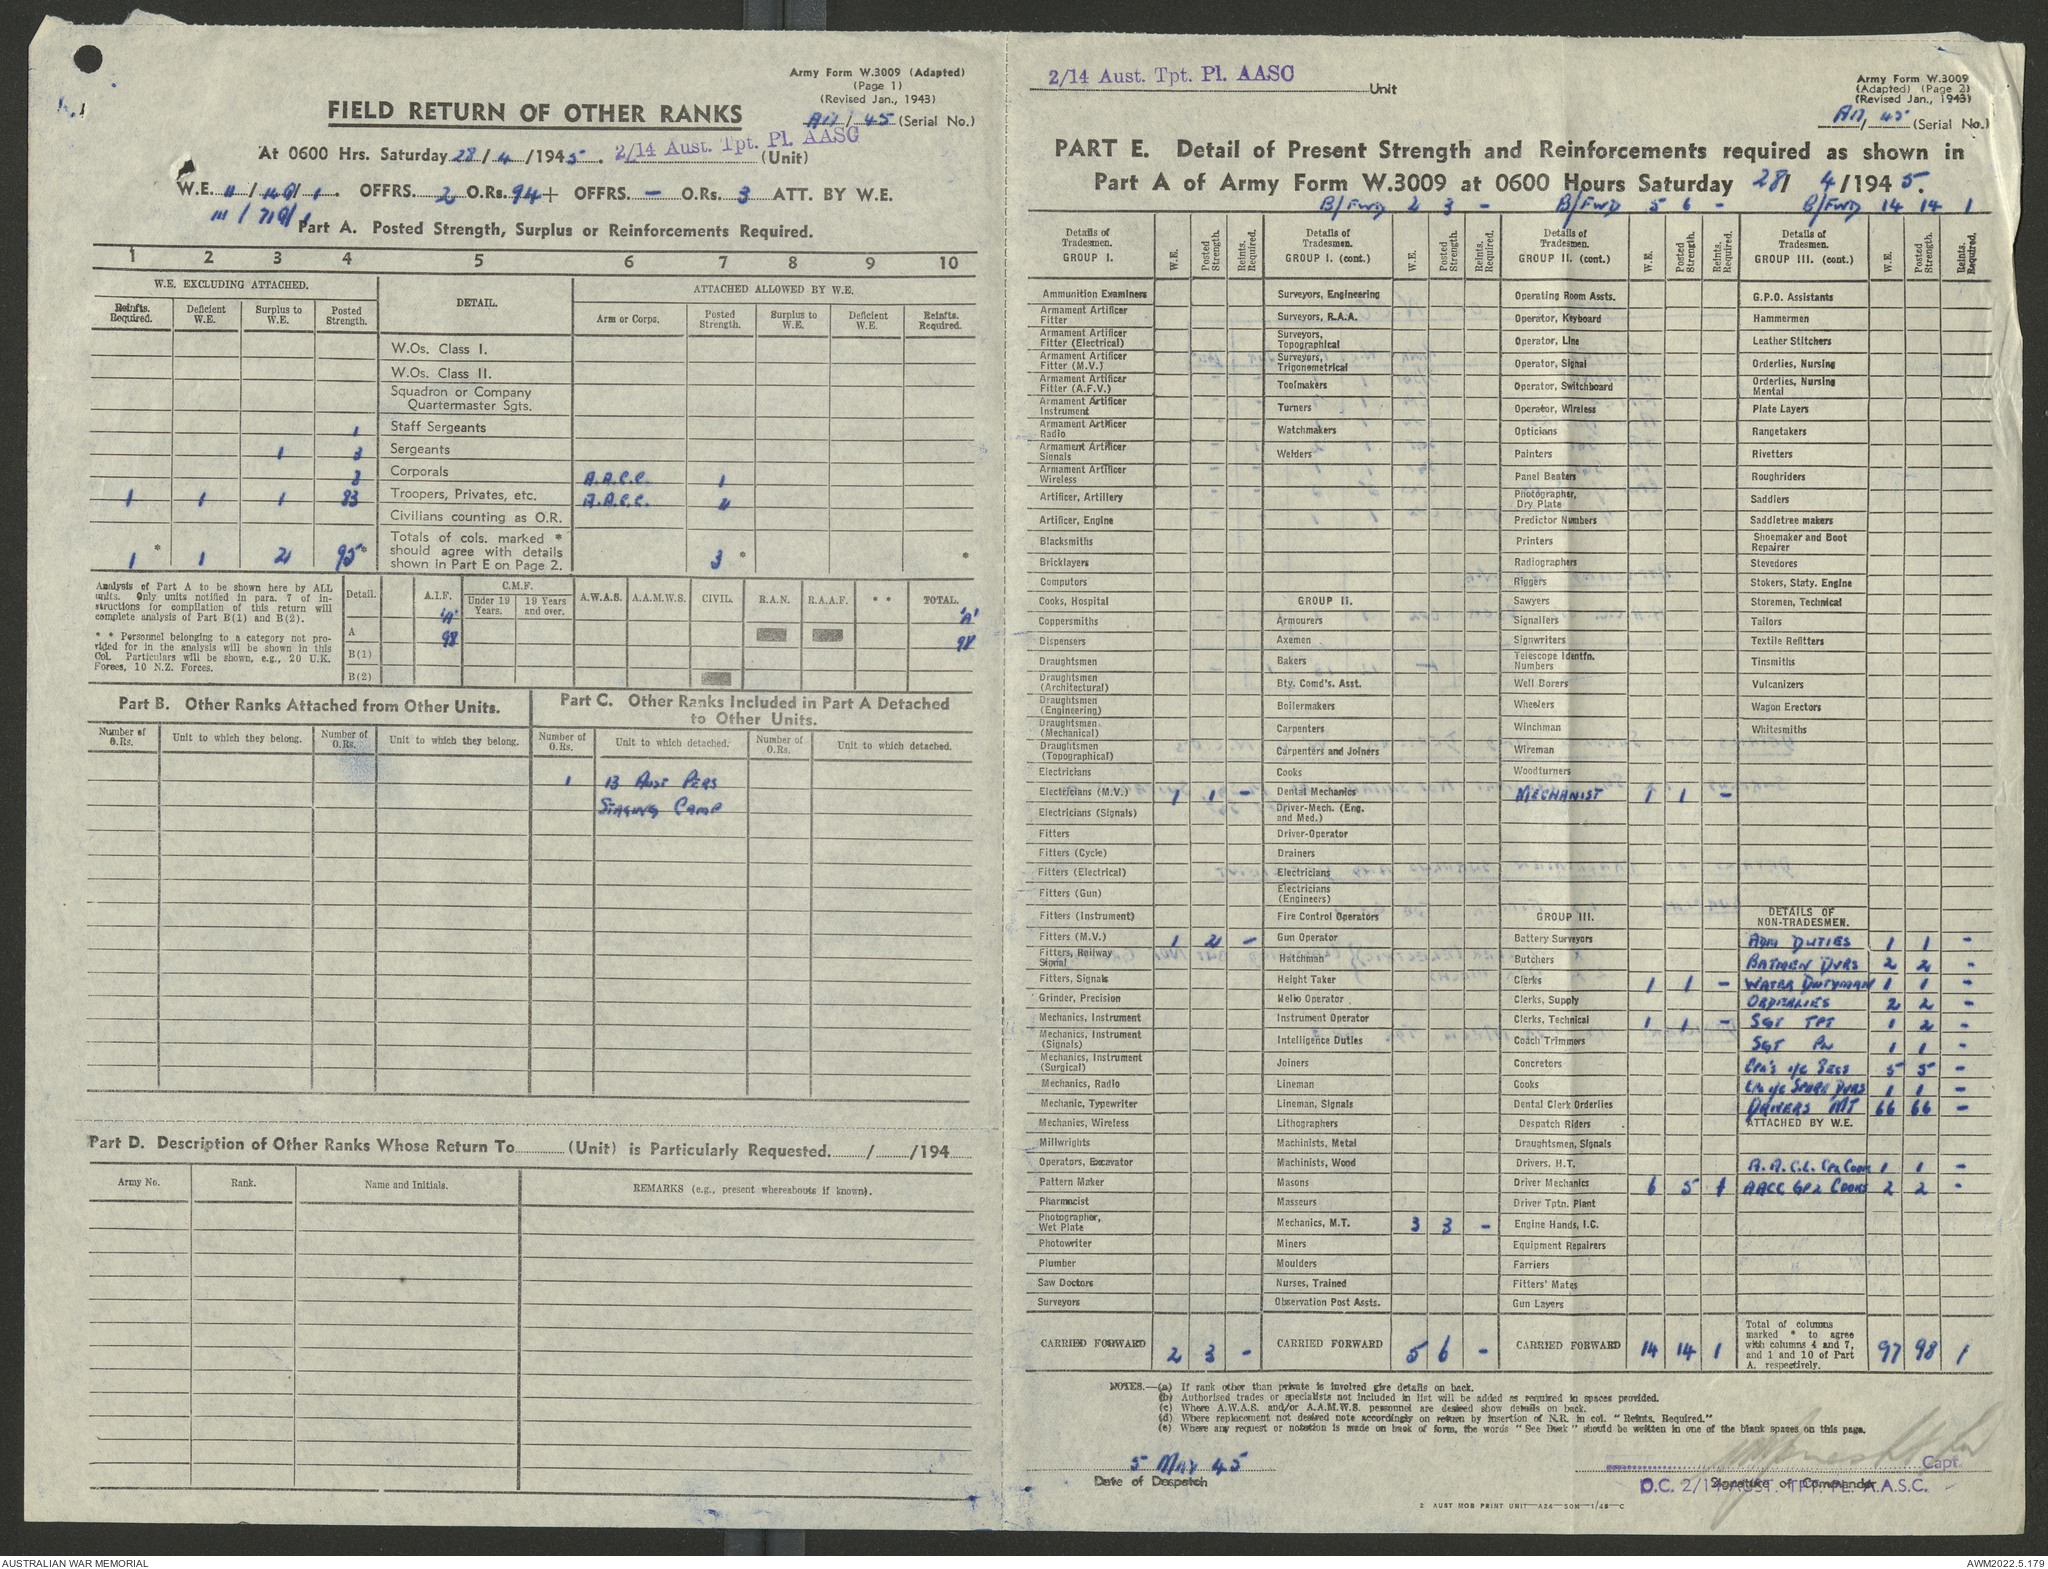 Army Form W.3009 (Adapted)
(Page 1)
(Revised Jan., 1943)
FIELD RETURN OF OTHER RANKS
45 (Serial No.)
At 0600 Hrs. Saturday 28/4/1945. 2/14 Aust. Tpt. Pl. AASC (Unit)
W.E. OFFRS. 2 O.Rs. 94 + OFFRS. — O.Rs. 3 ATT. BY W.E.
Part A. Posted Strength, Surplus or Reinforcements Required.
1 2 3 4 5 6 7 8 9 10
W.E. EXCLUDING ATTACHED. DETAIL. ATTACHED ALLOWED BY W.E.
Reinfts. Required. Deficient W.E. Surplus to W.E. Posted Strength. Arm or Corps. Posted Strength. Surplus to W.E. Deficient W.E. Reinfts. Required.
W.Os. Class I.
W.Os. Class II.
Squadron or Company
Quartermaster Sgts.
1 Staff Sergeants
1 3 Sergeants
8 Corporals A.A.C.C. 1
1 1 1 83 Troopers, Privates, etc. A.A.C.C. 2
Civilians counting as O.R.
Totals of cols. marked *
should agree with details
shown in Part E on Page 2.
1 * 1 2 95 * 3 * *
Analysis of Part A to be shown here by ALL
units. Only units notified in para. 7 of in-
structions for compilation of this return will
complete analysis of Part B(1) and B(2).
* * Personnel belonging to a category not pro-
vided for in the analysis will be shown in this
Col. Particulars will be shown, e.g., 20 U.K.
Forces, 10 N.Z. Forces.
Detail. A.I.F. C.M.F. Under 19 Years. 19 Years and over. A.W.A.S. A.A.M.W.S. CIVIL. R.A.N. R.A.A.F. * * TOTAL.
'A' 'A'
A 98 98
B(1)
B(2)
Part B. Other Ranks Attached from Other Units.
Number of O.Rs. Unit to which they belong. Number of O.Rs. Unit to which they belong.
Part C. Other Ranks Included in Part A Detached
to Other Units.
Number of O.Rs. Unit to which detached. Number of O.Rs. Unit to which detached.
1 13 Aust Pers
Staging Camp
Part D. Description of Other Ranks Whose Return To (Unit) is Particularly Requested. / /194
Army No. Rank. Name and Initials. REMARKS (e.g., present whereabouts if known).
2/14 Aust. Tpt. Pl. AASC Unit
Army Form W.3009
(Adapted) (Page 2)
(Revised Jan., 1943)
45 (Serial No.)
PART E. Detail of Present Strength and Reinforcements required as shown in
Part A of Army Form W.3009 at 0600 Hours Saturday 28/4/1945.
B/FWD 2 3 - B/FWD 5 6 - B/FWD 14 14 1
Details of Tradesmen. GROUP I. W.E. Posted Strength. Reints. Required.
Ammunition Examiners
Armament Artificer Fitter
Armament Artificer Fitter (Electrical)
Armament Artificer Fitter (M.V.)
Armament Artificer Fitter (A.F.V.)
Armament Artificer Instrument
Armament Artificer Radio
Armament Artificer Signals
Armament Artificer Wireless
Artificer, Artillery
Artificer, Engine
Blacksmiths
Bricklayers
Computors
Cooks, Hospital
Coppersmiths
Dispensers
Draughtsmen
Draughtsmen (Architectural)
Draughtsmen (Engineering)
Draughtsmen (Mechanical)
Draughtsmen (Topographical)
Electricians
Electricians (M.V.) 1 1 -
Electricians (Signals)
Fitters
Fitters (Cycle)
Fitters (Electrical)
Fitters (Gun)
Fitters (Instrument)
Fitters (M.V.) 1 2 -
Fitters, Railway Signal
Fitters, Signals
Grinder, Precision
Mechanics, Instrument
Mechanics, Instrument (Signals)
Mechanics, Instrument (Surgical)
Mechanics, Radio
Mechanic, Typewriter
Mechanics, Wireless
Millwrights
Operators, Excavator
Pattern Maker
Pharmacist
Photographer, Wet Plate
Photowriter
Plumber
Saw Doctors
Surveyors
CARRIED FORWARD 2 3 -
Details of Tradesmen. GROUP I. (cont.) W.E. Posted Strength. Reints. Required.
Surveyors, Engineering
Surveyors, R.A.A.
Surveyors, Topographical
Surveyors, Trigonometrical
Toolmakers
Turners
Watchmakers
Welders
GROUP II.
Armourers
Axemen
Bakers
Bty. Comd's. Asst.
Boilermakers
Carpenters
Carpenters and Joiners
Cooks
Dental Mechanics
Driver-Mech. (Eng. and Med.)
Driver-Operator
Drainers
Electricians
Electricians (Engineers)
Fire Control Operators
Gun Operator
Hatchman
Height Taker
Helio Operator
Instrument Operator
Intelligence Duties
Joiners
Lineman
Lineman, Signals
Lithographers
Machinists, Metal
Machinists, Wood
Masons
Masseurs
Mechanics, M.T. 3 3 -
Miners
Moulders
Nurses, Trained
Observation Post Assts.
CARRIED FORWARD 5 6 -
Details of Tradesmen. GROUP II. (cont.) W.E. Posted Strength. Reints. Required.
Operating Room Assts.
Operator, Keyboard
Operator, Line
Operator, Signal
Operator, Switchboard
Operator, Wireless
Opticians
Painters
Panel Beaters
Photographer, Dry Plate
Predictor Numbers
Printers
Radiographers
Riggers
Sawyers
Signallers
Signwriters
Telescope Identfn. Numbers
Well Borers
Wheelers
Winchman
Wireman
Woodturners
MECHANIST 1 1 -
GROUP III.
Battery Surveyors
Butchers
Clerks 1 1 -
Clerks, Supply
Clerks, Technical 1 1 -
Coach Trimmers
Concretors
Cooks
Dental Clerk Orderlies
Despatch Riders
Draughtsmen, Signals
Drivers, H.T.
Driver Mechanics 6 5 1
Driver Tptn. Plant
Engine Hands, I.C.
Equipment Repairers
Farriers
Fitters' Mates
Gun Layers
CARRIED FORWARD 14 14 1
Details of Tradesmen. GROUP III. (cont.) W.E. Posted Strength. Reints. Required.
G.P.O. Assistants
Hammermen
Leather Stitchers
Orderlies, Nursing
Orderlies, Nursing Mental
Plate Layers
Rangetakers
Rivetters
Roughriders
Saddlers
Saddletree makers
Shoemaker and Boot Repairer
Stevedores
Stokers, Staty. Engine
Storemen, Technical
Tailors
Textile Refitters
Tinsmiths
Vulcanizers
Wagon Erectors
Whitesmiths
DETAILS OF
NON-TRADESMEN.
ADM DUTIES 1 1 -
BATMEN DVRS 2 2 -
WATER DUTYMAN 1 1 -
ORDERLIES 2 2 -
SGT TPT 1 2 -
SGT PL 1 1 -
CPL'S I/C SECS 5 5 -
CPL I/C SPARE DVRS 1 1 -
DRIVERS MT 66 66 -
ATTACHED BY W.E.
A.A.C.C. CPL COOK 1 1 -
AACC GP2 COOKS 2 2 -
Total of columns
marked * to agree
with columns 4 and 7,
and 1 and 10 of Part
A, respectively. 97 98 1
NOTES.—(a) If rank other than private is involved give details on back.
(b) Authorised trades or specialists not included in list will be added as required in spaces provided.
(c) Where A.W.A.S. and/or A.A.M.W.S. personnel are desired show details on back.
(d) Where replacement not desired note accordingly on return by insertion of N.R. in col. "Reints. Required."
(e) Where any request or notation is made on back of form, the words "See Back" should be written in one of the blank spaces on this page.
5 MAY 45
Date of Despatch
Capt.
Signature of Commander
O.C. 2/14 AUST. TPT. PL. A.A.S.C.
2 AUST MOB PRINT UNIT—A26—50M—1/45—C
AUSTRALIAN WAR MEMORIAL
AWM2022.5.179